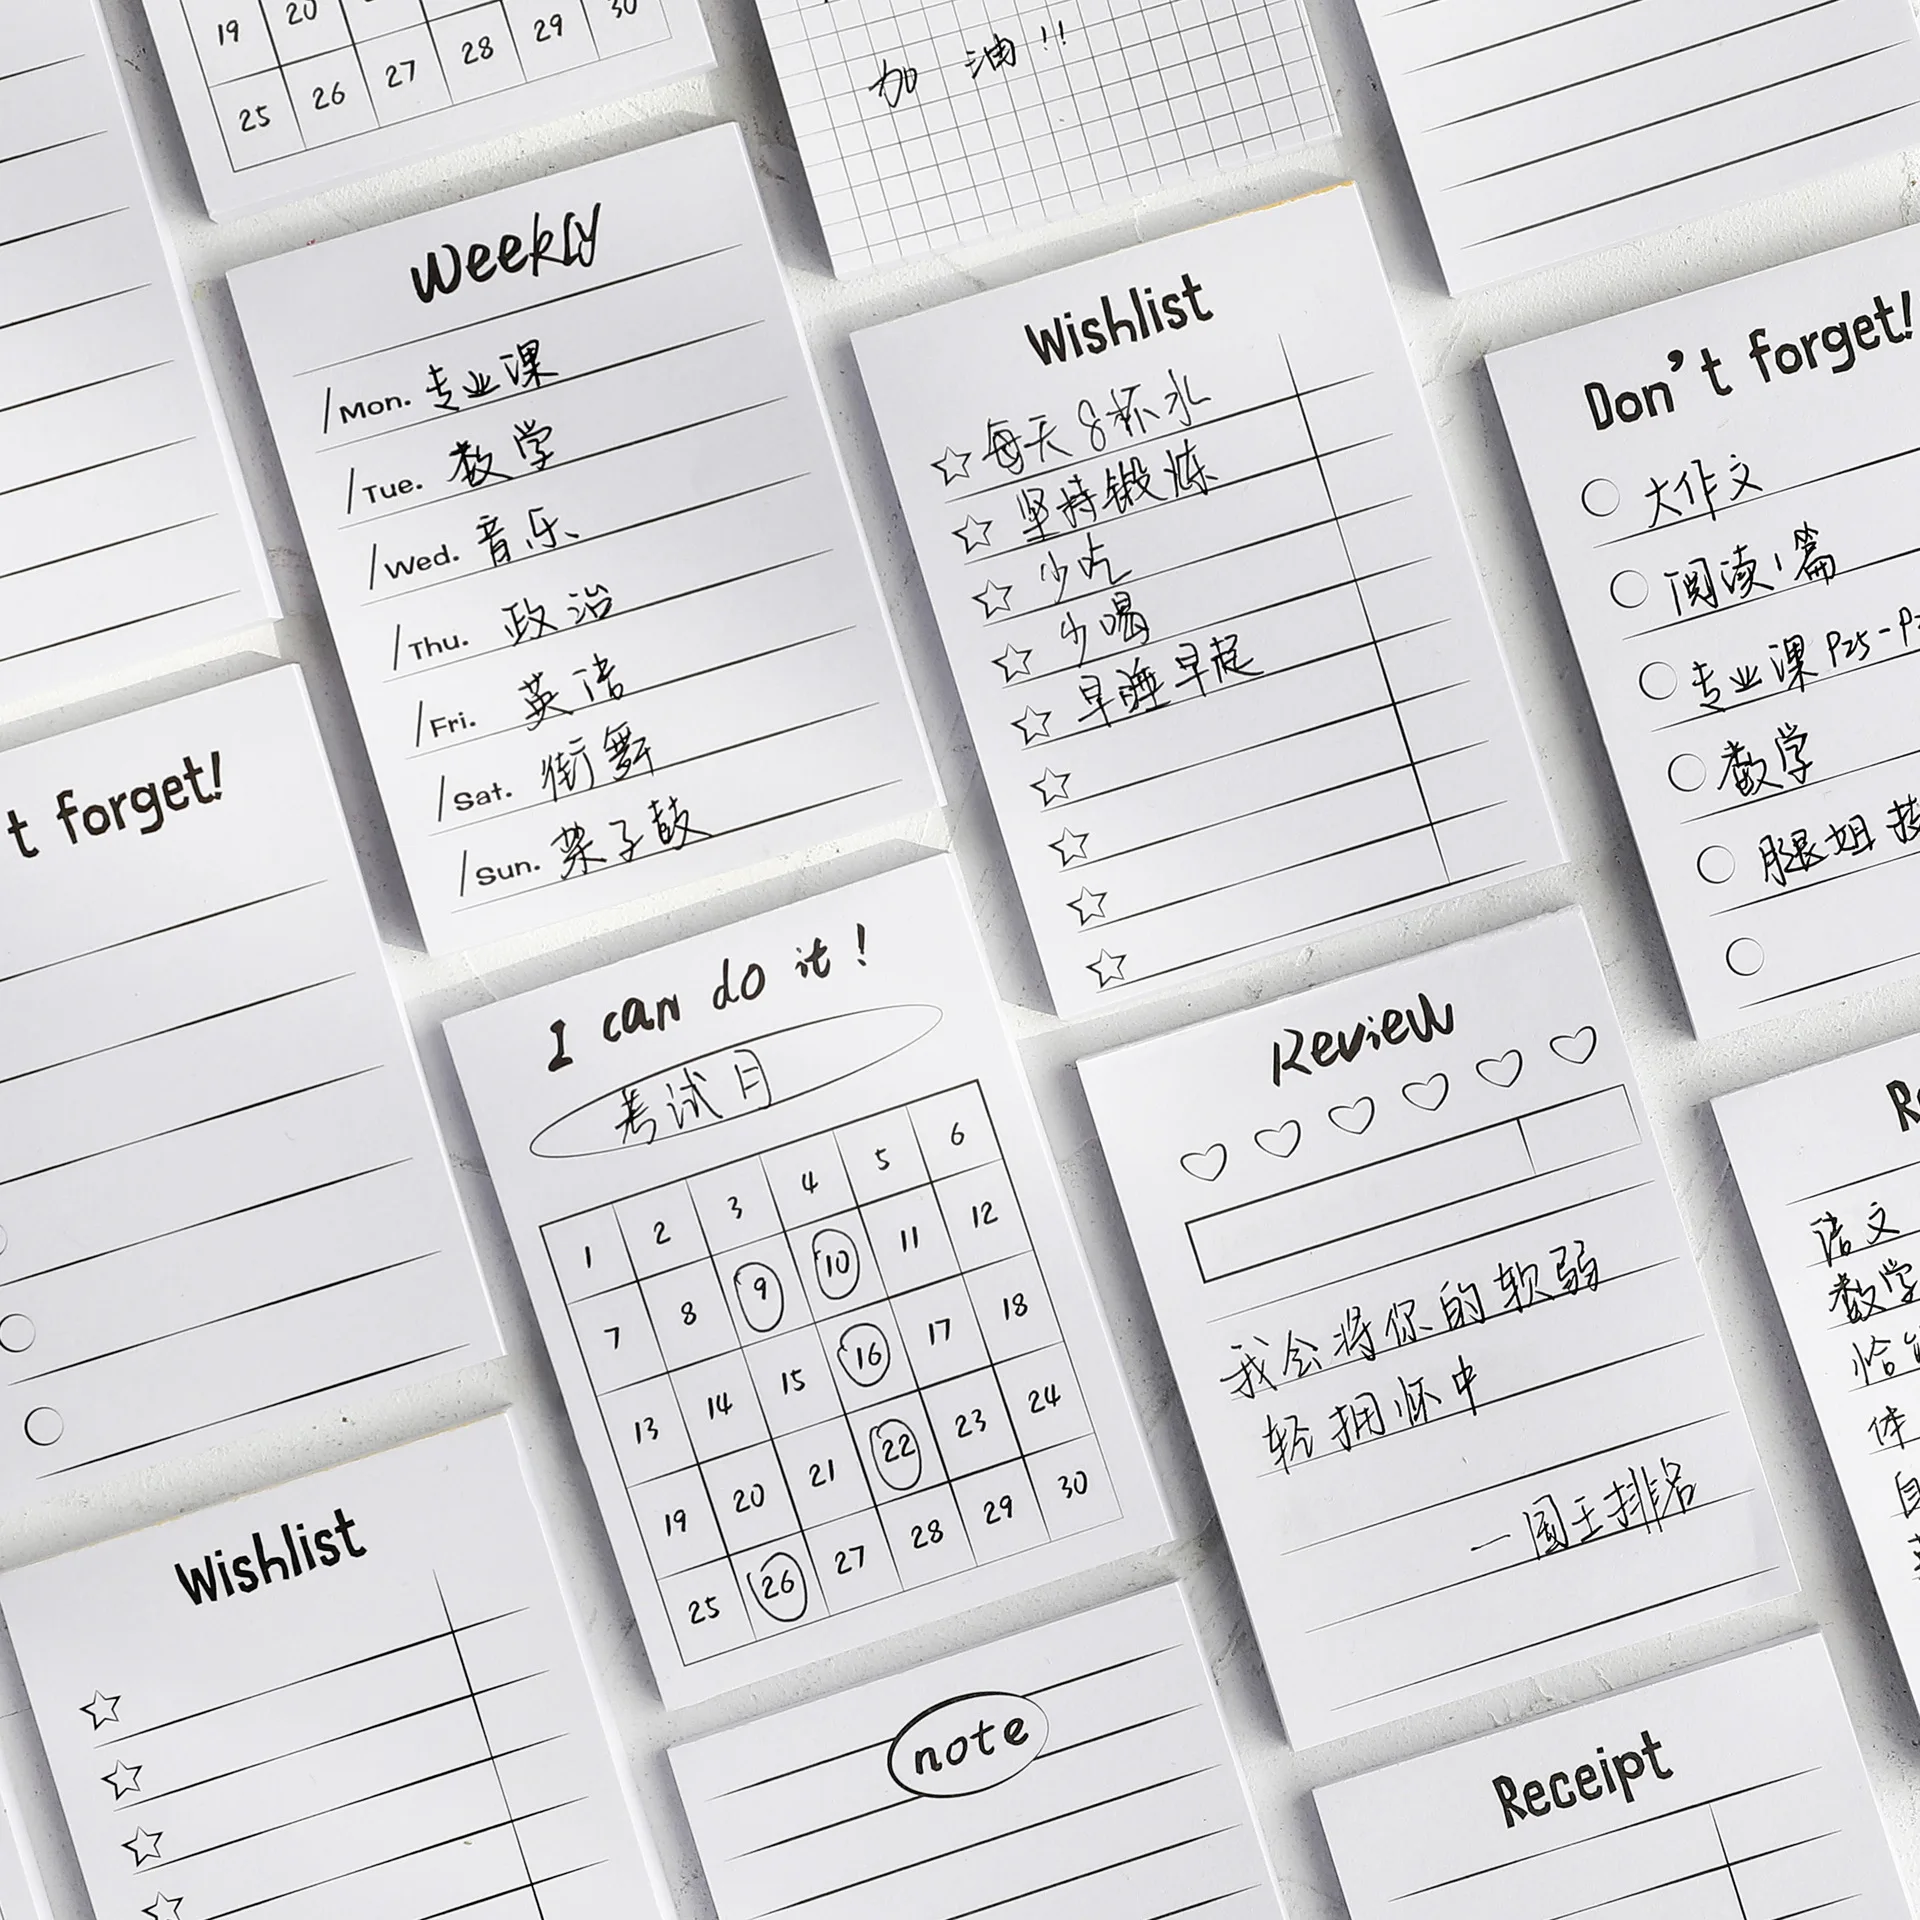 19 20 28 29 30
25 26 27
加油!!
Weekly
/Mon. 专业课
/Tue. 数学
/Wed. 音乐
/Thu. 政治
/Fri. 英语
/Sat. 街舞
/Sun. 架子鼓
Wishlist
每天8杯水
坚持锻炼
少吃
少喝
早睡早起
Don't forget!
大作文
阅读1篇
专业课 P25-P
数学
腿姐
t forget!
I can do it!
考试月
1 2 3 4 5 6
7 8 9 10 11 12
13 14 15 16 17 18
19 20 21 22 23 24
25 26 27 28 29 30
Review
我会将你的软弱
轻拥怀中
—国王排名
R
语文
数学
体
自
英
Wishlist
note
Receipt